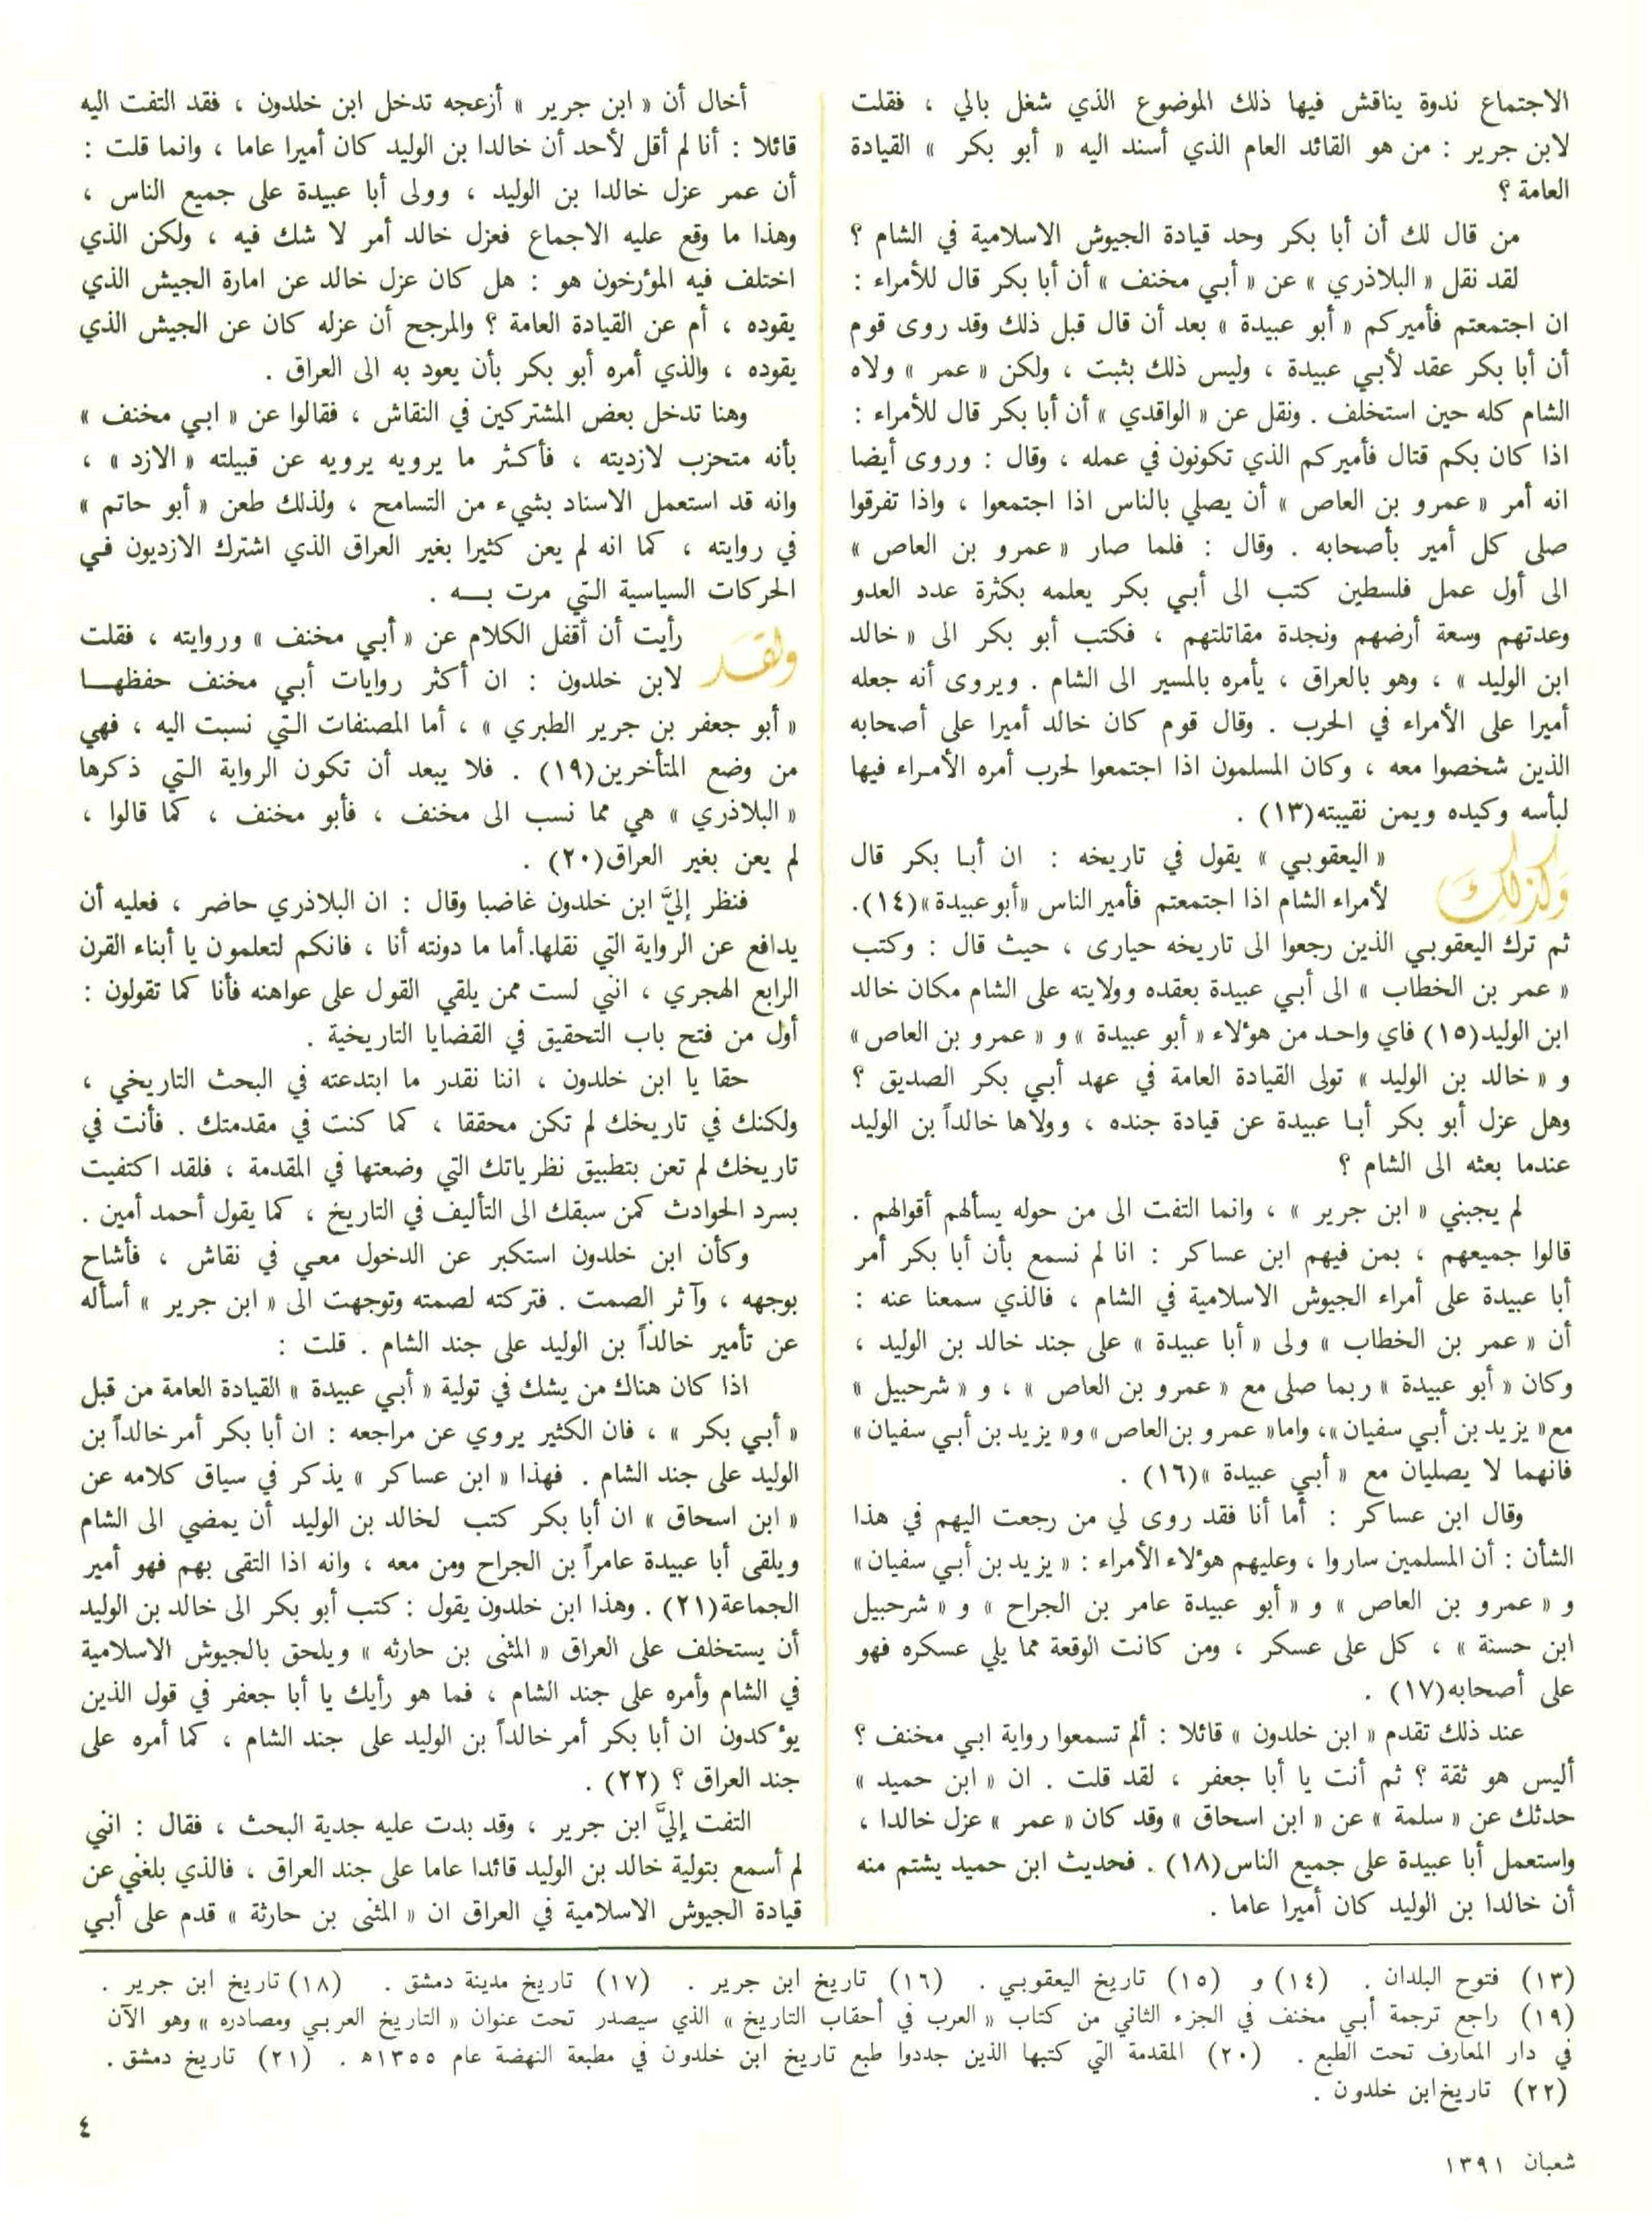 الاجتماع ندوة يناقش فيها ذلك الموضوع الذي شغل بالي ، فقلت
لابن جرير : من هو القائد العام الذي أسند اليه « أبو بكر » القيادة
العامة ؟
من قال لك أن أبا بكر وحد قيادة الجيوش الاسلامية في الشام ؟
لقد نقل « البلاذري » عن « أبي مخنف » أن أبا بكر قال للأمراء :
ان اجتمعتم فأميركم « أبو عبيدة » بعد أن قال قبل ذلك وقد روى قوم
أن أبا بكر عقد لأبي عبيدة ، وليس ذلك بثبت ، ولكن « عمر » ولاه
الشام كله حين استخلف . ونقل عن « الواقدي » أن أبا بكر قال للأمراء :
اذا كان بكم قتال فأميركم الذي تكونون في عمله ، وقال : وروى أيضا
انه أمر « عمرو بن العاص » أن يصلي بالناس اذا اجتمعوا ، واذا تفرقوا
صلى كل أمير بأصحابه . وقال : فلما صار « عمرو بن العاص »
الى أول عمل فلسطين كتب الى أبي بكر يعلمه بكثرة عدد العدو
وعدتهم وسعة أرضهم ونجدة مقاتلتهم ، فكتب أبو بكر الى « خالد
ابن الوليد » ، وهو بالعراق ، يأمره بالمسير الى الشام . ويروى أنه جعله
أميرا على الأمراء في الحرب . وقال قوم كان خالد أميرا على أصحابه
الذين شخصوا معه ، وكان المسلمون اذا اجتمعوا لحرب أمره الأمراء فيها
لبأسه وكيده ويمن نقيبته(١٣) .
وكذلك « اليعقوبي » يقول في تاريخه : ان أبا بكر قال
لأمراء الشام اذا اجتمعتم فأمير الناس «أبو عبيدة»(١٤).
ثم ترك اليعقوبي الذين رجعوا الى تاريخه حيارى ، حيث قال : وكتب
« عمر بن الخطاب » الى أبي عبيدة بعقده وولايته على الشام مكان خالد
ابن الوليد(١٥) فاي واحد من هؤلاء « أبو عبيدة » و « عمرو بن العاص »
و « خالد بن الوليد » تولى القيادة العامة في عهد أبي بكر الصديق ؟
وهل عزل أبو بكر أبا عبيدة عن قيادة جنده ، وولاها خالداً بن الوليد
عندما بعثه الى الشام ؟
لم يجبني « ابن جرير » ، وانما التفت الى من حوله يسألهم أقوالهم .
قالوا جميعهم ، بمن فيهم ابن عساكر : انا لم نسمع بأن أبا بكر أمر
أبا عبيدة على أمراء الجيوش الاسلامية في الشام ، فالذي سمعنا عنه :
أن « عمر بن الخطاب » ولى « أبا عبيدة » على جند خالد بن الوليد ،
وكان « أبو عبيدة » ربما صلى مع « عمرو بن العاص » ، و « شرحبيل »
مع« يزيد بن أبي سفيان »، واما« عمرو بن العاص » و« يزيد بن أبي سفيان »
فانهما لا يصليان مع « أبي عبيدة »(١٦) .
وقال ابن عساكر : أما أنا فقد روى لي من رجعت اليهم في هذا
الشأن : أن المسلمين ساروا ، وعليهم هؤلاء الأمراء : « يزيد بن أبي سفيان »
و « عمرو بن العاص » و « أبو عبيدة عامر بن الجراح » و « شرحبيل
ابن حسنة » ، كل على عسكر ، ومن كانت الوقعة مما يلي عسكره فهو
على أصحابه(١٧) .
عند ذلك تقدم « ابن خلدون » قائلا : ألم تسمعوا رواية ابي مخنف ؟
أليس هو ثقة ؟ ثم أنت يا أبا جعفر ، لقد قلت . ان « ابن حميد »
حدثك عن « سلمة » عن « ابن اسحاق » وقد كان « عمر » عزل خالدا ،
واستعمل أبا عبيدة على جميع الناس(١٨) . فحديث ابن حميد يشتم منه
أن خالدا بن الوليد كان أميرا عاما .
أخال أن « ابن جرير » أزعجه تدخل ابن خلدون ، فقد التفت اليه
قائلا : أنا لم أقل لأحد أن خالدا بن الوليد كان أميرا عاما ، وانما قلت :
أن عمر عزل خالدا بن الوليد ، وولى أبا عبيدة على جميع الناس ،
وهذا ما وقع عليه الاجماع فعزل خالد أمر لا شك فيه ، ولكن الذي
اختلف فيه المؤرخون هو : هل كان عزل خالد عن امارة الجيش الذي
يقوده ، أم عن القيادة العامة ؟ والمرجح أن عزله كان عن الجيش الذي
يقوده ، والذي أمره أبو بكر بأن يعود به الى العراق .
وهنا تدخل بعض المشتركين في النقاش ، فقالوا عن « ابي مخنف »
بأنه متحزب لازديته ، فأكثر ما يرويه يرويه عن قبيلته « الازد » ،
وانه قد استعمل الاسناد بشيء من التسامح ، ولذلك طعن « أبو حاتم »
في روايته ، كما انه لم يعن كثيرا بغير العراق الذي اشترك الازديون في
الحركات السياسية التي مرت بــه .
ولقد رأيت أن أقفل الكلام عن « أبي مخنف » وروايته ، فقلت
لابن خلدون : ان أكثر روايات أبي مخنف حفظهــا
« أبو جعفر بن جرير الطبري » ، أما المصنفات التي نسبت اليه ، فهي
من وضع المتأخرين(١٩) . فلا يبعد أن تكون الرواية التي ذكرها
« البلاذري » هي مما نسب الى مخنف ، فأبو مخنف ، كما قالوا ،
لم يعن بغير العراق(٢٠) .
فنظر إليَّ ابن خلدون غاضبا وقال : ان البلاذري حاضر ، فعليه أن
يدافع عن الرواية التي نقلها. أما ما دونته أنا ، فانكم لتعلمون يا أبناء القرن
الرابع الهجري ، انني لست ممن يلقي القول على عواهنه فأنا كما تقولون :
أول من فتح باب التحقيق في القضايا التاريخية .
حقا يا ابن خلدون ، اننا نقدر ما ابتدعته في البحث التاريخي ،
ولكنك في تاريخك لم تكن محققا ، كما كنت في مقدمتك . فأنت في
تاريخك لم تعن بتطبيق نظرياتك التي وضعتها في المقدمة ، فلقد اكتفيت
بسرد الحوادث كمن سبقك الى التأليف في التاريخ ، كما يقول أحمد أمين .
وكأن ابن خلدون استكبر عن الدخول معي في نقاش ، فأشاح
بوجهه ، وآثر الصمت . فتركته لصمته وتوجهت الى « ابن جرير » أسأله
عن تأمير خالداً بن الوليد على جند الشام . قلت :
اذا كان هناك من يشك في تولية « أبي عبيدة » القيادة العامة من قبل
« أبي بكر » ، فان الكثير يروي عن مراجعه : ان أبا بكر أمر خالداً بن
الوليد على جند الشام . فهذا « ابن عساكر » يذكر في سياق كلامه عن
« ابن اسحاق » ان أبا بكر كتب لخالد بن الوليد أن يمضي الى الشام
ويلقى أبا عبيدة عامراً بن الجراح ومن معه ، وانه اذا التقى بهم فهو أمير
الجماعة(٢١) . وهذا ابن خلدون يقول : كتب أبو بكر الى خالد بن الوليد
أن يستخلف على العراق « المثنى بن حارثه » ويلحق بالجيوش الاسلامية
في الشام وأمره على جند الشام ، فما هو رأيك يا أبا جعفر في قول الذين
يؤكدون ان أبا بكر أمر خالداً بن الوليد على جند الشام ، كما أمره على
جند العراق ؟ (٢٢) .
التفت إليَّ ابن جرير ، وقد بدت عليه جدية البحث ، فقال : انني
لم أسمع بتولية خالد بن الوليد قائدا عاما على جند العراق ، فالذي بلغني عن
قيادة الجيوش الاسلامية في العراق ان « المثنى بن حارثة » قدم على أبي
(١٣) فتوح البلدان . (١٤) و (١٥) تاريخ اليعقوبي . (١٦) تاريخ ابن جرير . (١٧) تاريخ مدينة دمشق . (١٨) تاريخ ابن جرير .
(١٩) راجع ترجمة أبي مخنف في الجزء الثاني من كتاب « العرب في أحقاب التاريخ » الذي سيصدر تحت عنوان « التاريخ العربي ومصادره » وهو الآن
في دار المعارف تحت الطبع . (٢٠) المقدمة التي كتبها الذين جددوا طبع تاريخ ابن خلدون في مطبعة النهضة عام ١٣٥٥ه . (٢١) تاريخ دمشق .
(٢٢) تاريخ ابن خلدون .
٤
شعبان ١٣٩١